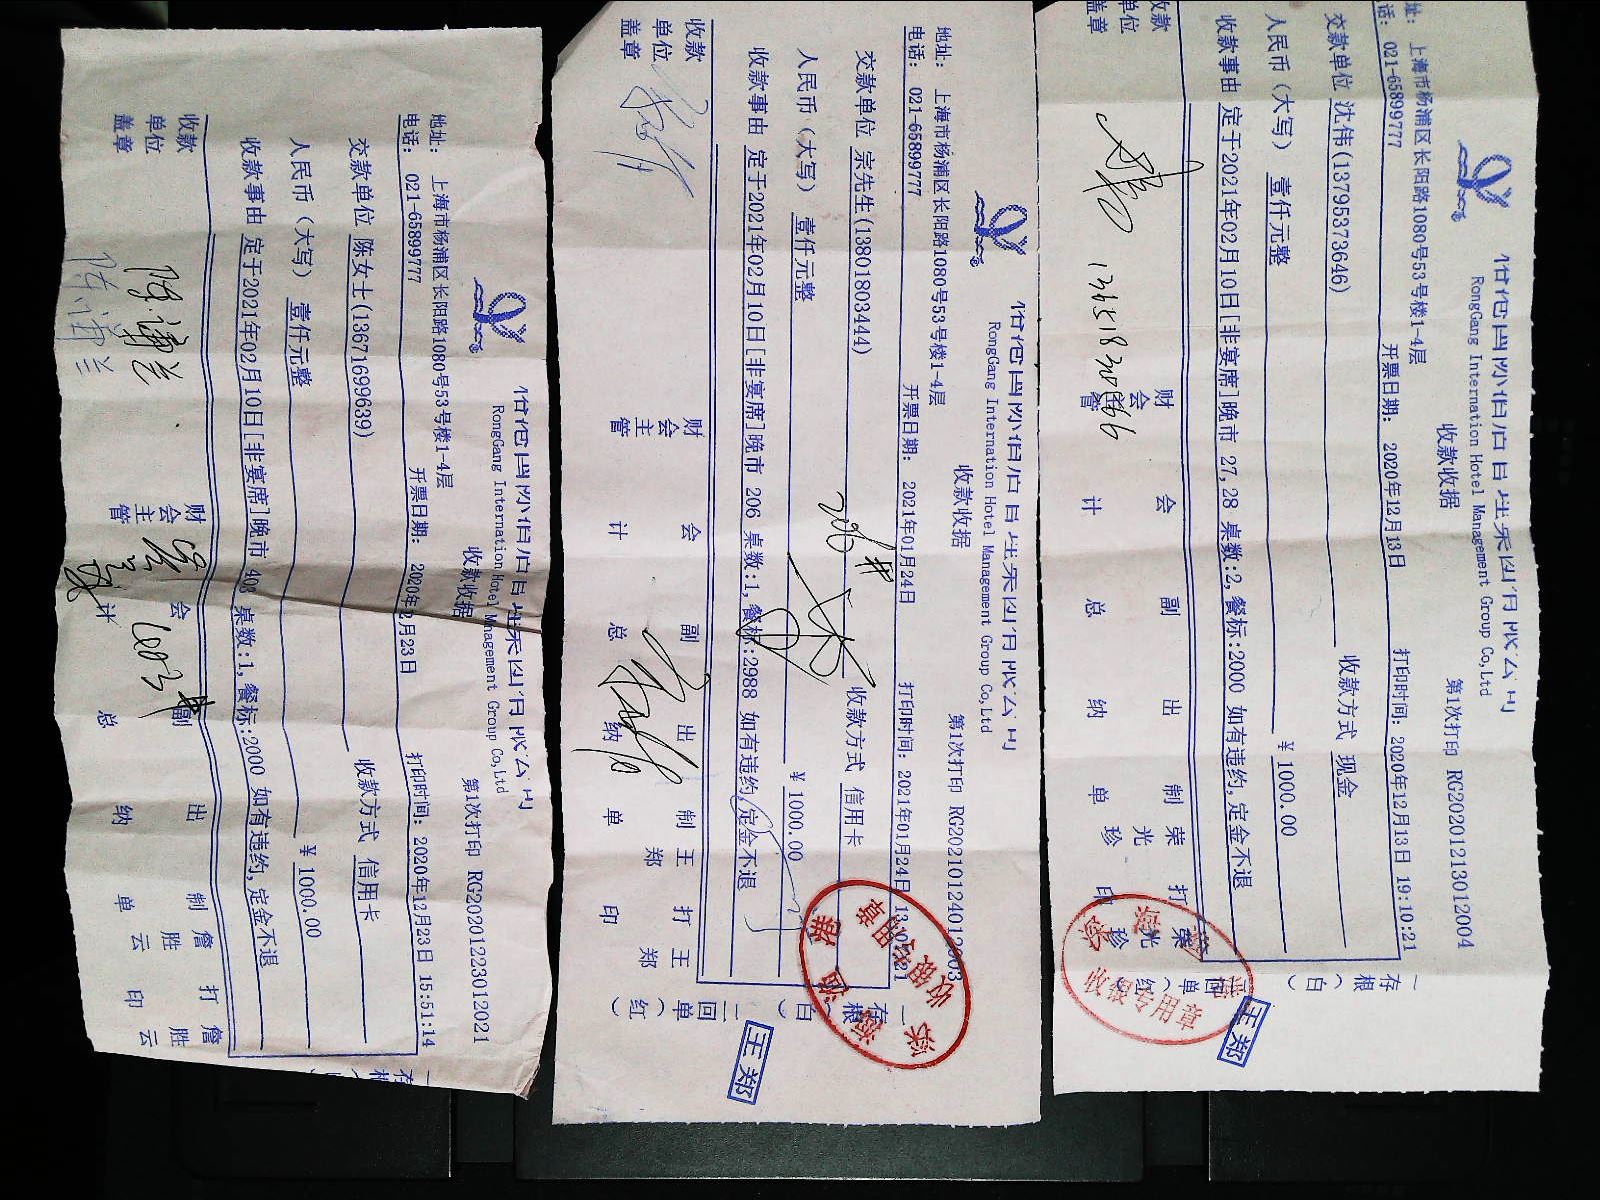 RongGang International Hotel Management Group Co,Ltd
收款收据
第1次打印 RG20201223012021
地址: 上海市杨浦区长阳路1080号53号楼1-4层
电话: 021-65899777
开票日期:
打印时间: 2020年12月23日 15:51:14
交款单位 陈女士(13671699639)
收款方式 信用卡
人民币(大写) 壹仟元整
¥ 1000.00
收款事由 定于2021年02月10日[非宴席]晚市 403 桌数:1,餐标:2000 如有违约,定金不退
收款单位盖章
财会主管
会计
副总
出纳
制单 詹胜云
打印 詹胜云
RongGang International Hotel Management Group Co,Ltd
收款收据
第1次打印 RG20210124012003
地址: 上海市杨浦区长阳路1080号53号楼1-4层
电话: 021-65899777
开票日期: 2021年01月24日
打印时间: 2021年01月24日
交款单位 宗先生(13801803444)
收款方式 信用卡
人民币(大写) 壹仟元整
¥ 1000.00
206
收款事由 定于2021年02月10日[非宴席]晚市 206 桌数:1,餐标:2988 如有违约,定金不退
收款单位盖章
财会主管
会计
副总
出纳
制单 王郑
打印 王郑
一存根(白)
二回单(红)
收银专用章
王郑
RongGang International Hotel Management Group Co,Ltd
收款收据
第1次打印 RG20201213012004
址: 上海市杨浦区长阳路1080号53号楼1-4层
话: 021-65899777
开票日期: 2020年12月13日
打印时间: 2020年12月13日 19:10:21
交款单位 沈伟(13795373646)
收款方式 现金
人民币(大写) 壹仟元整
¥ 1000.00
收款事由 定于2021年02月10日[非宴席]晚市 27,28 桌数:2,餐标:2000 如有违约,定金不退
收款单位盖章
会计
副总
出纳
制单 荣光珍
打印 荣光珍
一存根(白)
二回单(红)
收银专用章
王郑